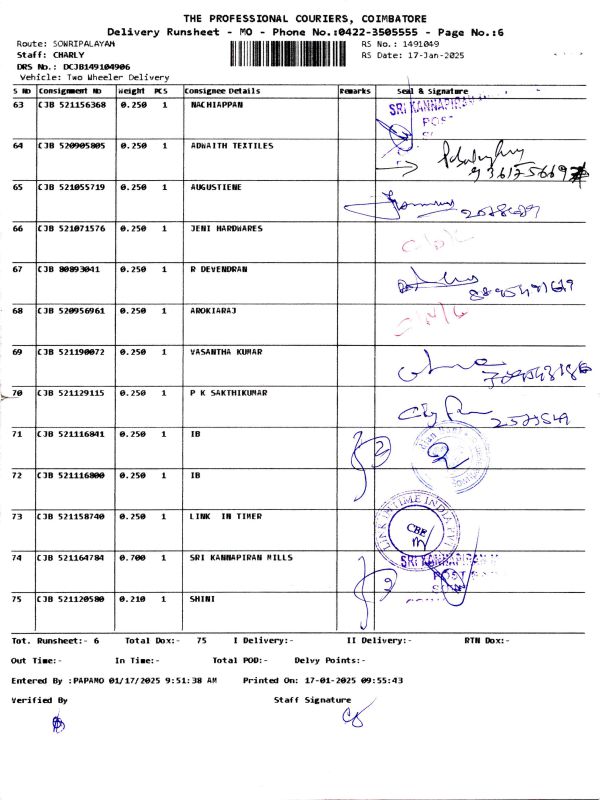 THE PROFESSIONAL COURIERS, COIMBATORE
Delivery Runsheet - MO - Phone No.:0422-3505555 - Page No.:6
Route: SOWRIPALAYAM RS No.: 1491049
Staff: CHARLY RS Date: 17-Jan-2025
DRS No.: DCJB149104906
Vehicle: Two Wheeler Delivery
S No Consignment No Weight PCS Consignee Details Remarks Seal & Signature
63 CJB 521156368 0.250 1 NACHIAPPAN SRI KANNAPIRAN
POST
64 CJB 520905805 0.250 1 ADWAITH TEXTILES
65 CJB 521055719 0.250 1 AUGUSTIENE
66 CJB 521071576 0.250 1 JENI HARDWARES
67 CJB 80893041 0.250 1 R DEVENDRAN
68 CJB 520956961 0.250 1 AROKIARAJ
69 CJB 521190072 0.250 1 VASANTHA KUMAR
70 CJB 521129115 0.250 1 P K SAKTHIKUMAR
71 CJB 521116841 0.250 1 IB
72 CJB 521116800 0.250 1 IB
73 CJB 521158740 0.250 1 LINK IN TIMER LINK INTIME INDIA PVT
CBE
74 CJB 521164784 0.700 1 SRI KANNAPIRAN MILLS SRI KANNAPIRAN
POST
75 CJB 521120580 0.210 1 SHINI
Tot. Runsheet:- 6 Total Dox:- 75 I Delivery:- II Delivery:- RTN Dox:-
Out Time:- In Time:- Total POD:- Delvy Points:-
Entered By :PAPAMO 01/17/2025 9:51:38 AM Printed On: 17-01-2025 09:55:43
Verified By Staff Signature